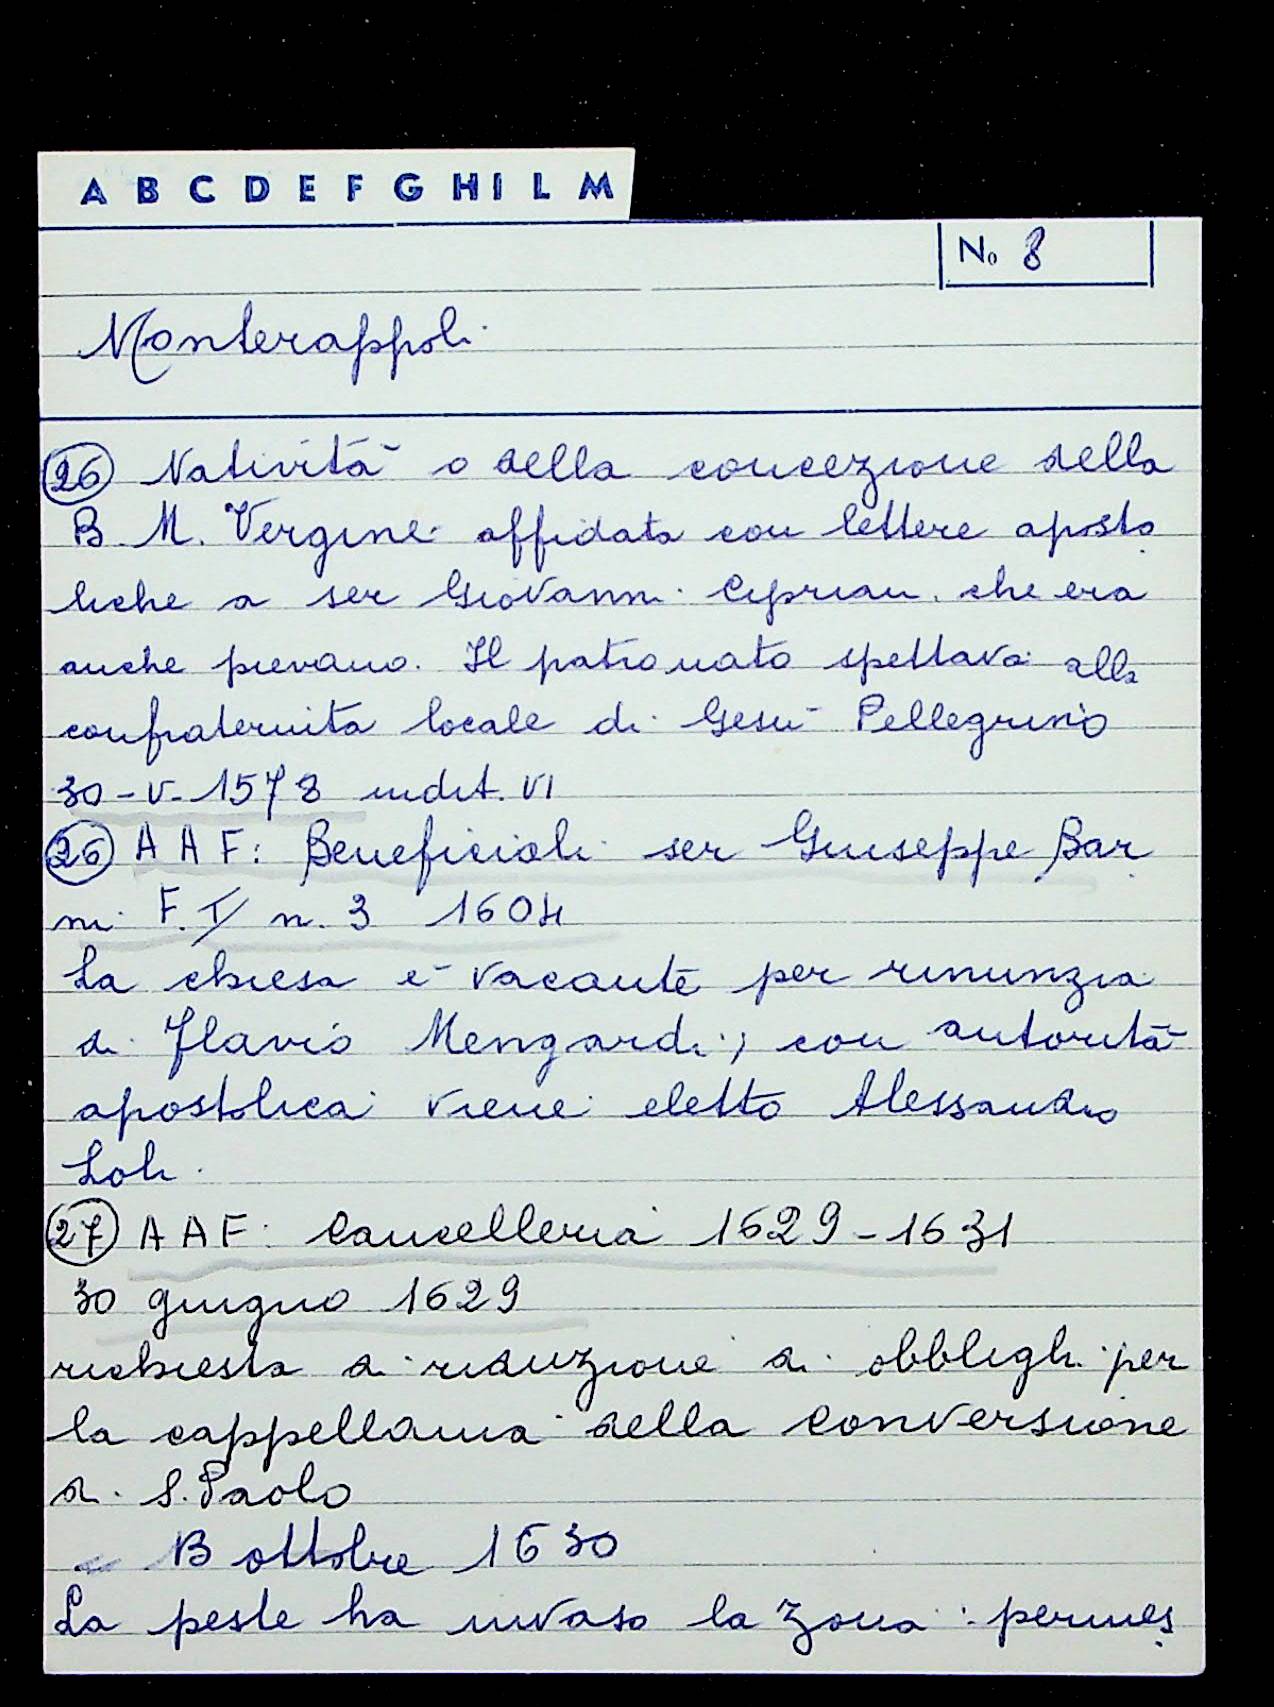 A B C D E F G H I L M
No 8
Monterappoli
26 Natività o della concezione della
B. M. Vergine affidata con lettere aposto
liche a ser Giovanni Cipriani che era
anche pievano. Il patronato spettava alla
confraternita locale di Gesù Pellegrino
30-V-1578 indit. VI
26 AAF: Beneficiali ser Giuseppe Bar
ni F. I n. 3 1604
La chiesa è vacante per rinunzia
di Flavio Mengardi; con autorità
apostolica viene eletto Alessandro
Loli.
27 AAF: Cancelleria 1629-1631
30 giugno 1629
richiesta di riduzione di obblighi per
la cappellania della conversione
di S. Paolo
13 ottobre 1630
La peste ha invaso la zona: permes